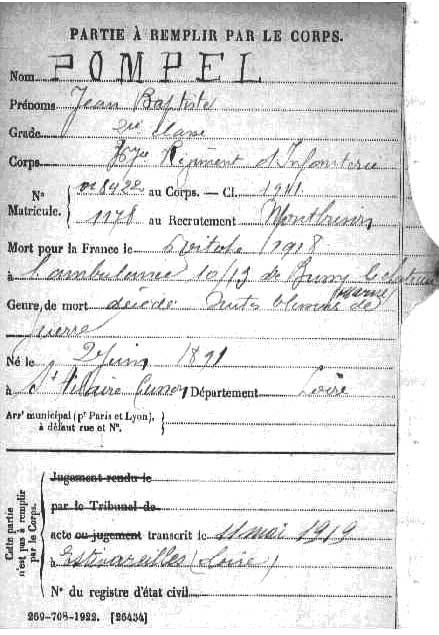 PARTIE À REMPLIR PAR LE CORPS.
Nom POMPEL
Prénoms Jean Baptiste
Grade 2e classe
Corps Régiment d'Infanterie
N° Matricule. { 8422 au Corps. — Cl. 1911
1178 au Recrutement Montbrison
Mort pour la France le 8 octobre 1918
à l'ambulance 10/13 de le château
Marne
Genre de mort décédé suites blessures de
guerre
Né le 2 juin 1891
à St Hilaire Cusson Département Loire
Arr' municipal (p' Paris et Lyon), }
à défaut rue et N°.
Cette partie n'est pas à remplir par le Corps.
Jugement rendu le
par le Tribunal de
acte ou jugement transcrit le 11 mai 1919
à Estivareilles (Loire)
N° du registre d'état civil
269-708-1922. [26434]